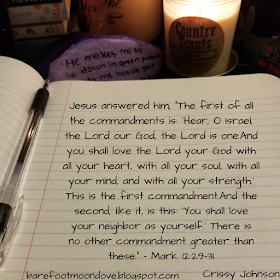 Country
Scents
He makes me to
lie down in green
me beside
Jesus answered him, "The first of all
the commandments is: 'Hear, O Israel,
the Lord our God, the Lord is one.And
you shall love the Lord your God with
all your heart, with all your soul, with all
your mind, and with all your strength.'
This is the first commandment.And the
second, like it, is this: 'You shall love
your neighbor as yourself.' There is
no other commandment greater than
these." - Mark 12:29-31
barefootmoondove.blogspot.com Crissy Johnson